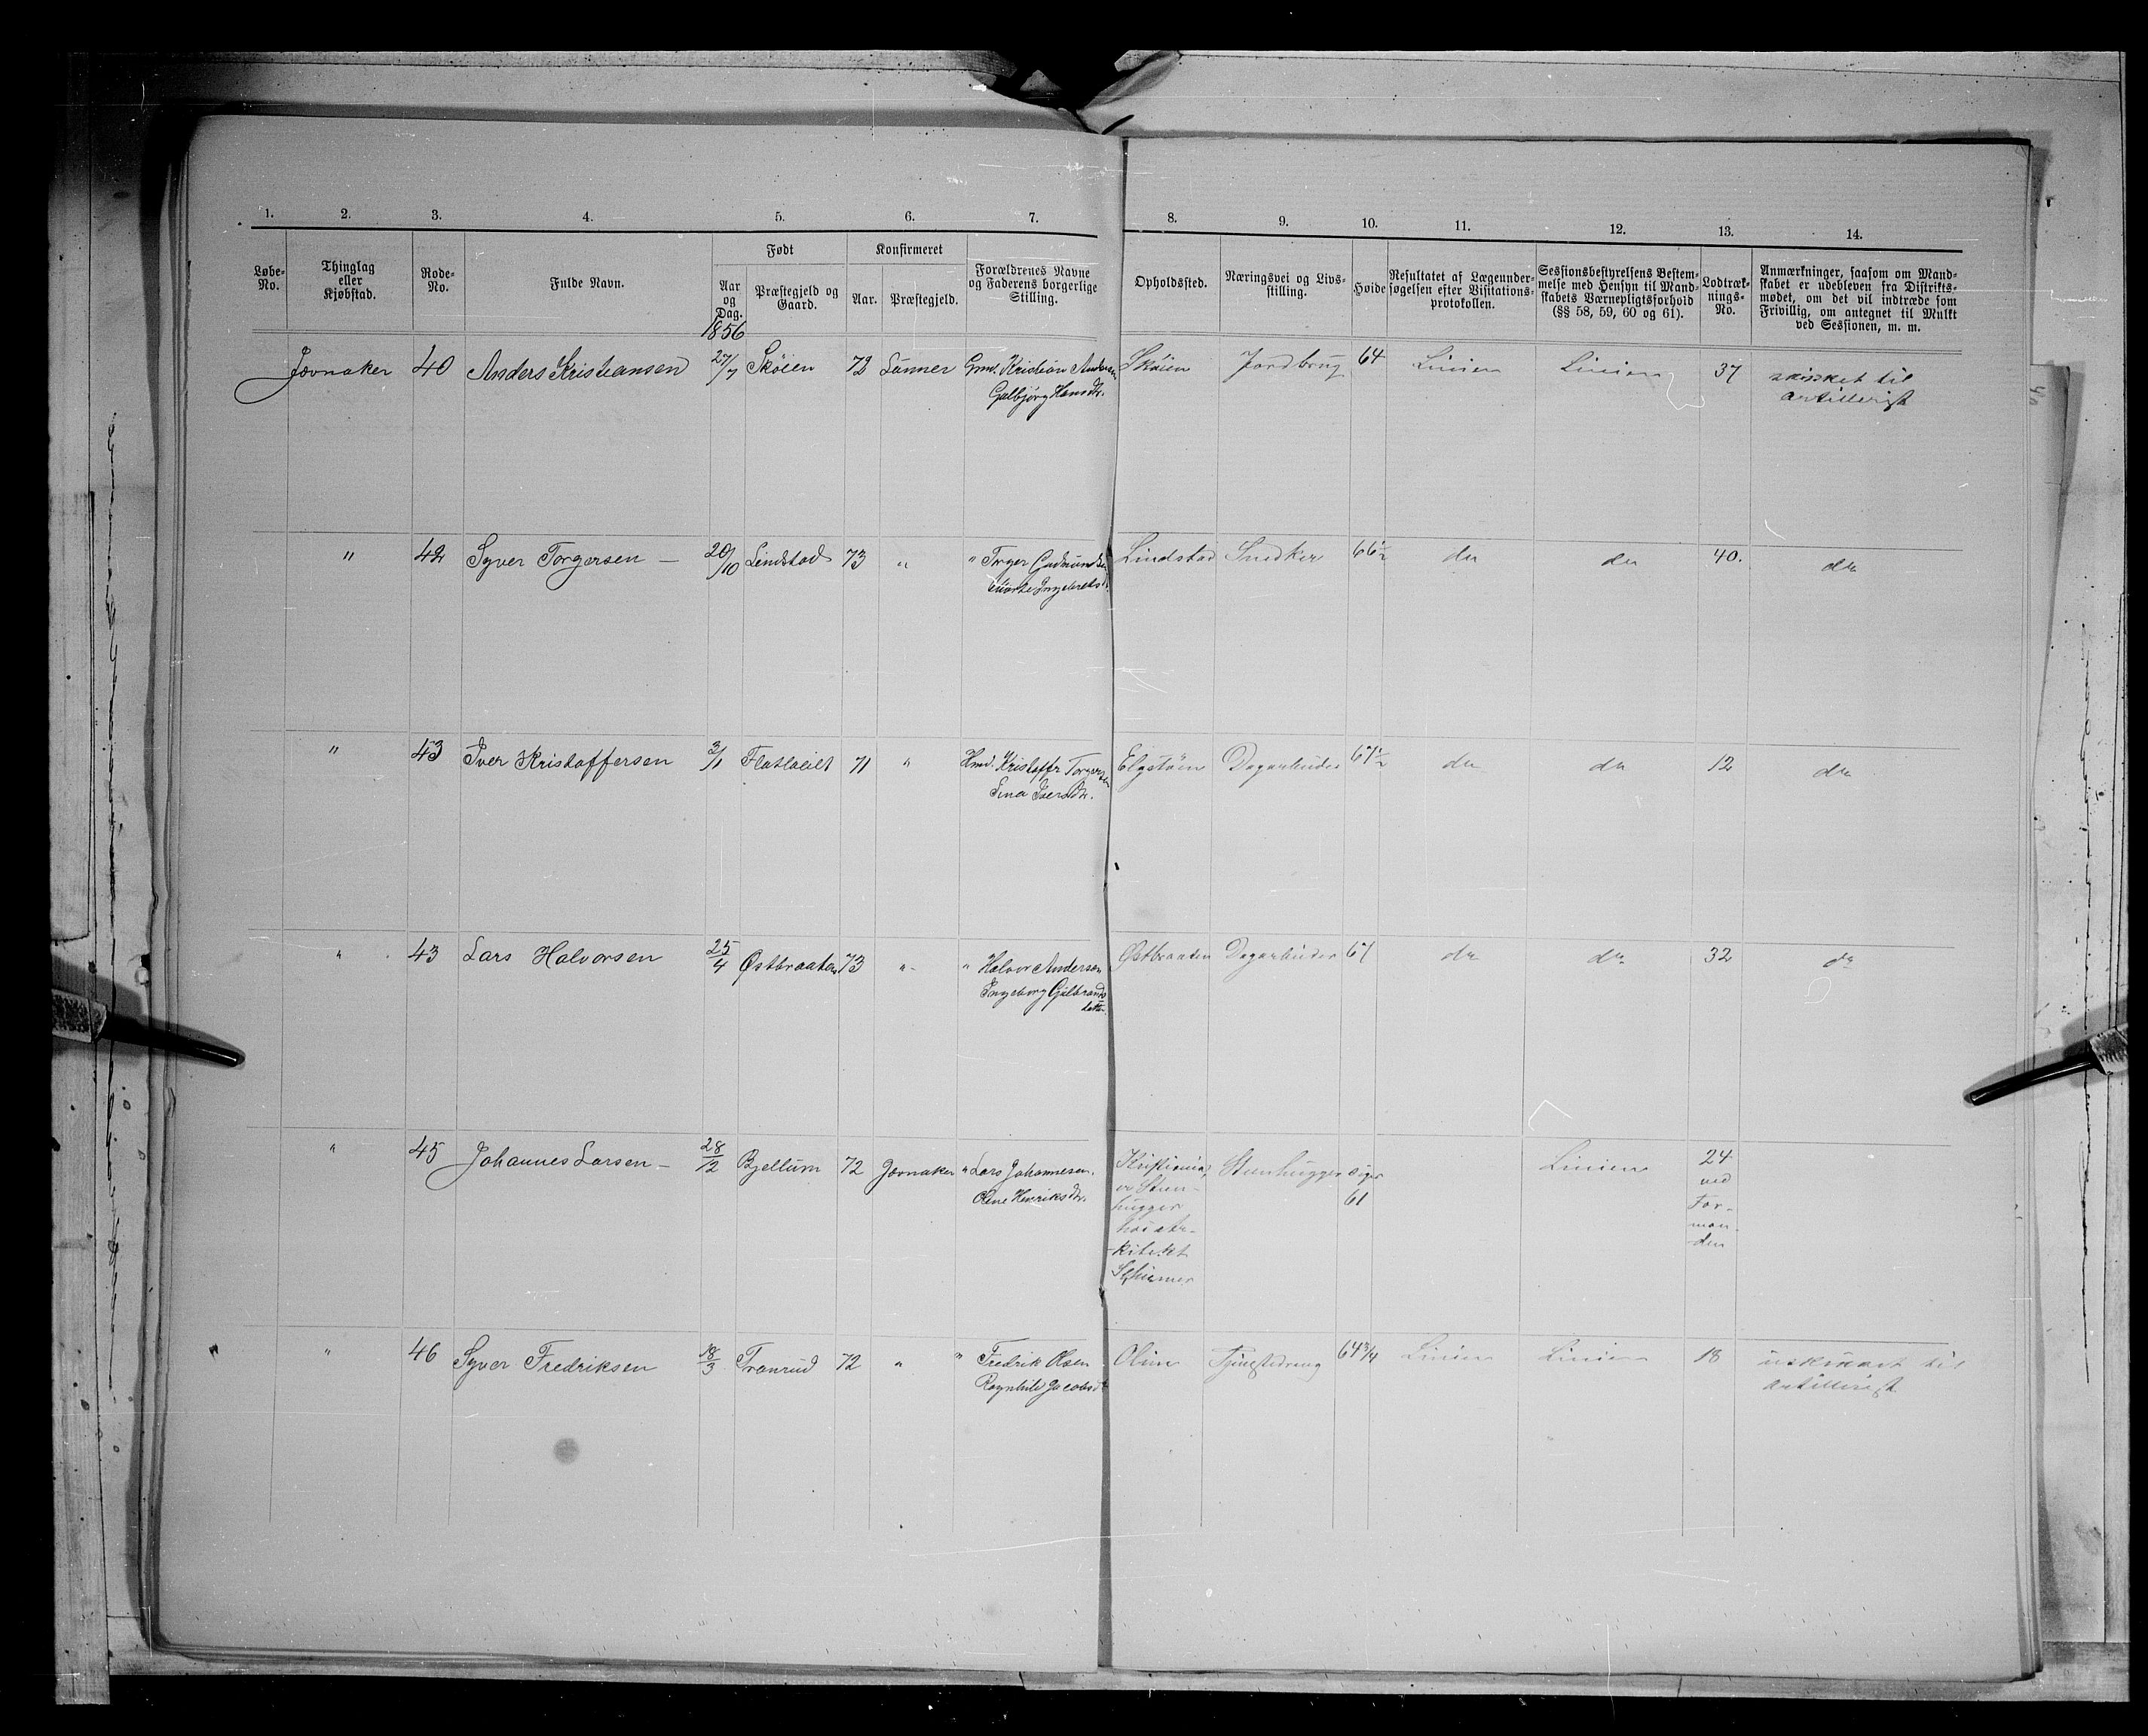 1. 2. 3. 4. 5. 6. 7. 8. 9. 10. 11. 12. 13. 14.
Løbe-No.
Thinglag eller Kjøbstad.
Rode-No.
Fulde Navn.
Født
Aar og Dag.
Præstegjeld og Gaard.
Konfirmeret
Aar.
Præstegjeld.
Forældrenes Navne og Faderens borgerlige Stilling.
Opholdssted.
Næringsvei og Livsstilling.
Høide
Resultatet af Lægeundersøgelsen efter Visitationsprotokollen.
Sessionsbestyrelsens Bestemmelse med Hensyn til Mandskabets Værnepligtsforhold (§§ 58, 59, 60 og 61).
Lodtræknings-No.
Anmærkninger, saasom om Mandskabet er udebleven fra Distriktsmødet, om det vil indtræde som Frivillig, om antegnet til Mulkt ved Sessionen, m. m.
1856
Jevnaker 40 Anders Kristiansen 27/7 Skøien 72 Lunner Gmd. Kristian Andersen Skøien Jordbrug 64 Linien Linien 37 skikket til
Gulbjørg Hansdtr. artillerist
" 42 Syver Torgersen — 20/10 Lindstad 73 " " Torger Gudmunds Lindstad Snedker 66½ do do 40. do
Ingebretsd.
" 43 Iver Kristoffersen 3/1 Flatla 71 " Hmd. Kristoffer Torgersen Dagarbeider 67½ do do 12 do
Iversdtr.
" 43 Lars Halvorsen 25/4 Østbraaten 73 " " Halvor Andersen Østbraaten Dagarbeider 67 do do 32 do
Ingeborg Gulbrands
datter
" 45 Johannes Larsen — 28/12 Bjellum 72 Jevnaker " Lars Johannesen. Kristiania, Steenhugger siger Linien 24
Olene Henriksdtr. er Steen- 61 ved
hugger For-
hos Ar- man-
kitekt den
Schirmer
" 46 Syver Fredriksen 18/3 Tranrud 72 " " Fredrik Olsen Olum Tjenestedreng 64¾ Linien Linien 18 uskikket til
Ragnhild Jacobsd artillerist